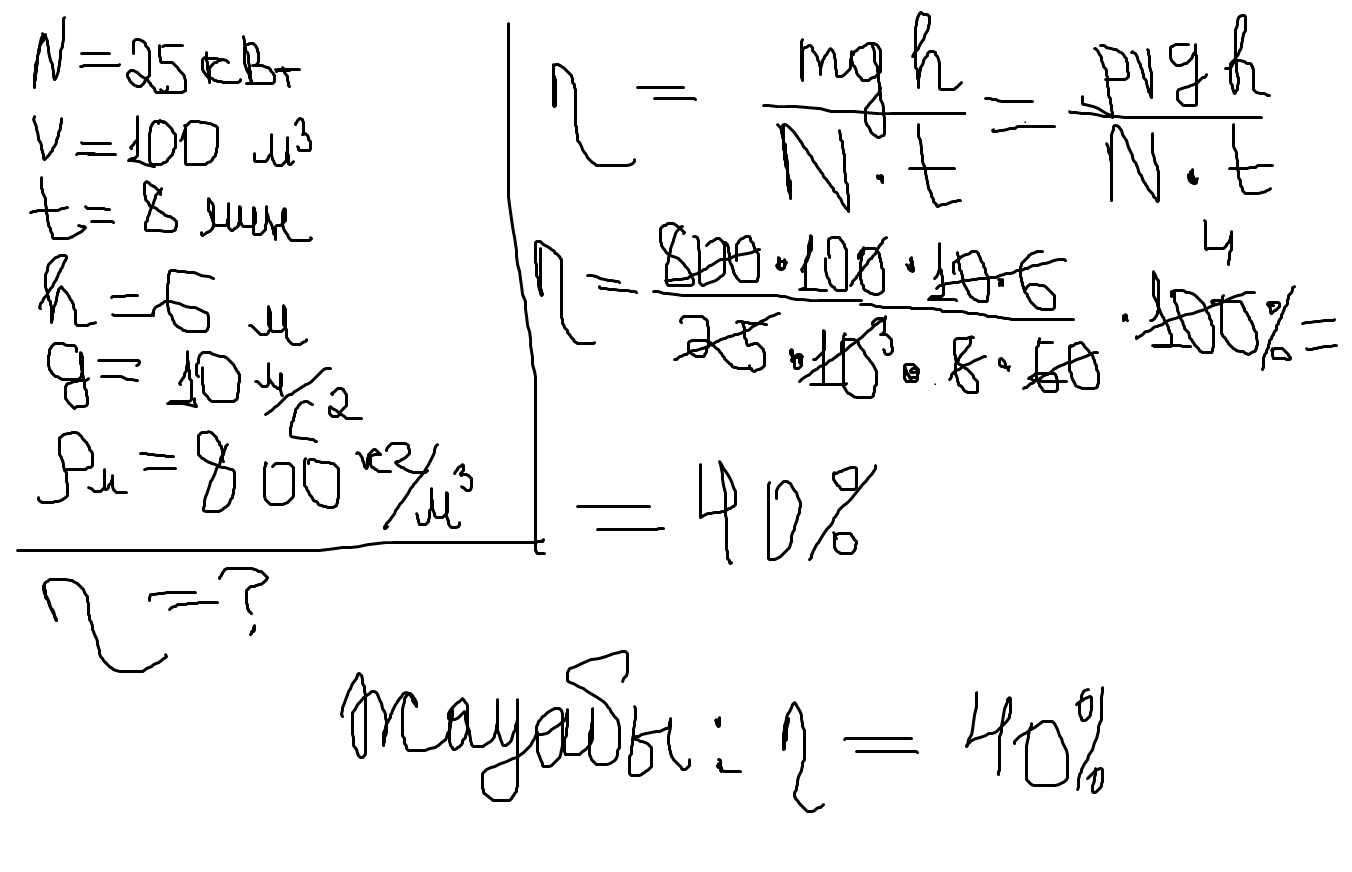 N = 25 кВт
V = 100 м³
t = 8 мин
h = 6 м
g = 10 м/с²
ρм = 800 кг/м³
η = ?
η = mgh / N · t = ρVgh / N · t
η = 800 · 100 · 10 · 6 / 25 · 10³ · 8 · 60 · 100% =
4
= 40%
жауабы : η = 40%